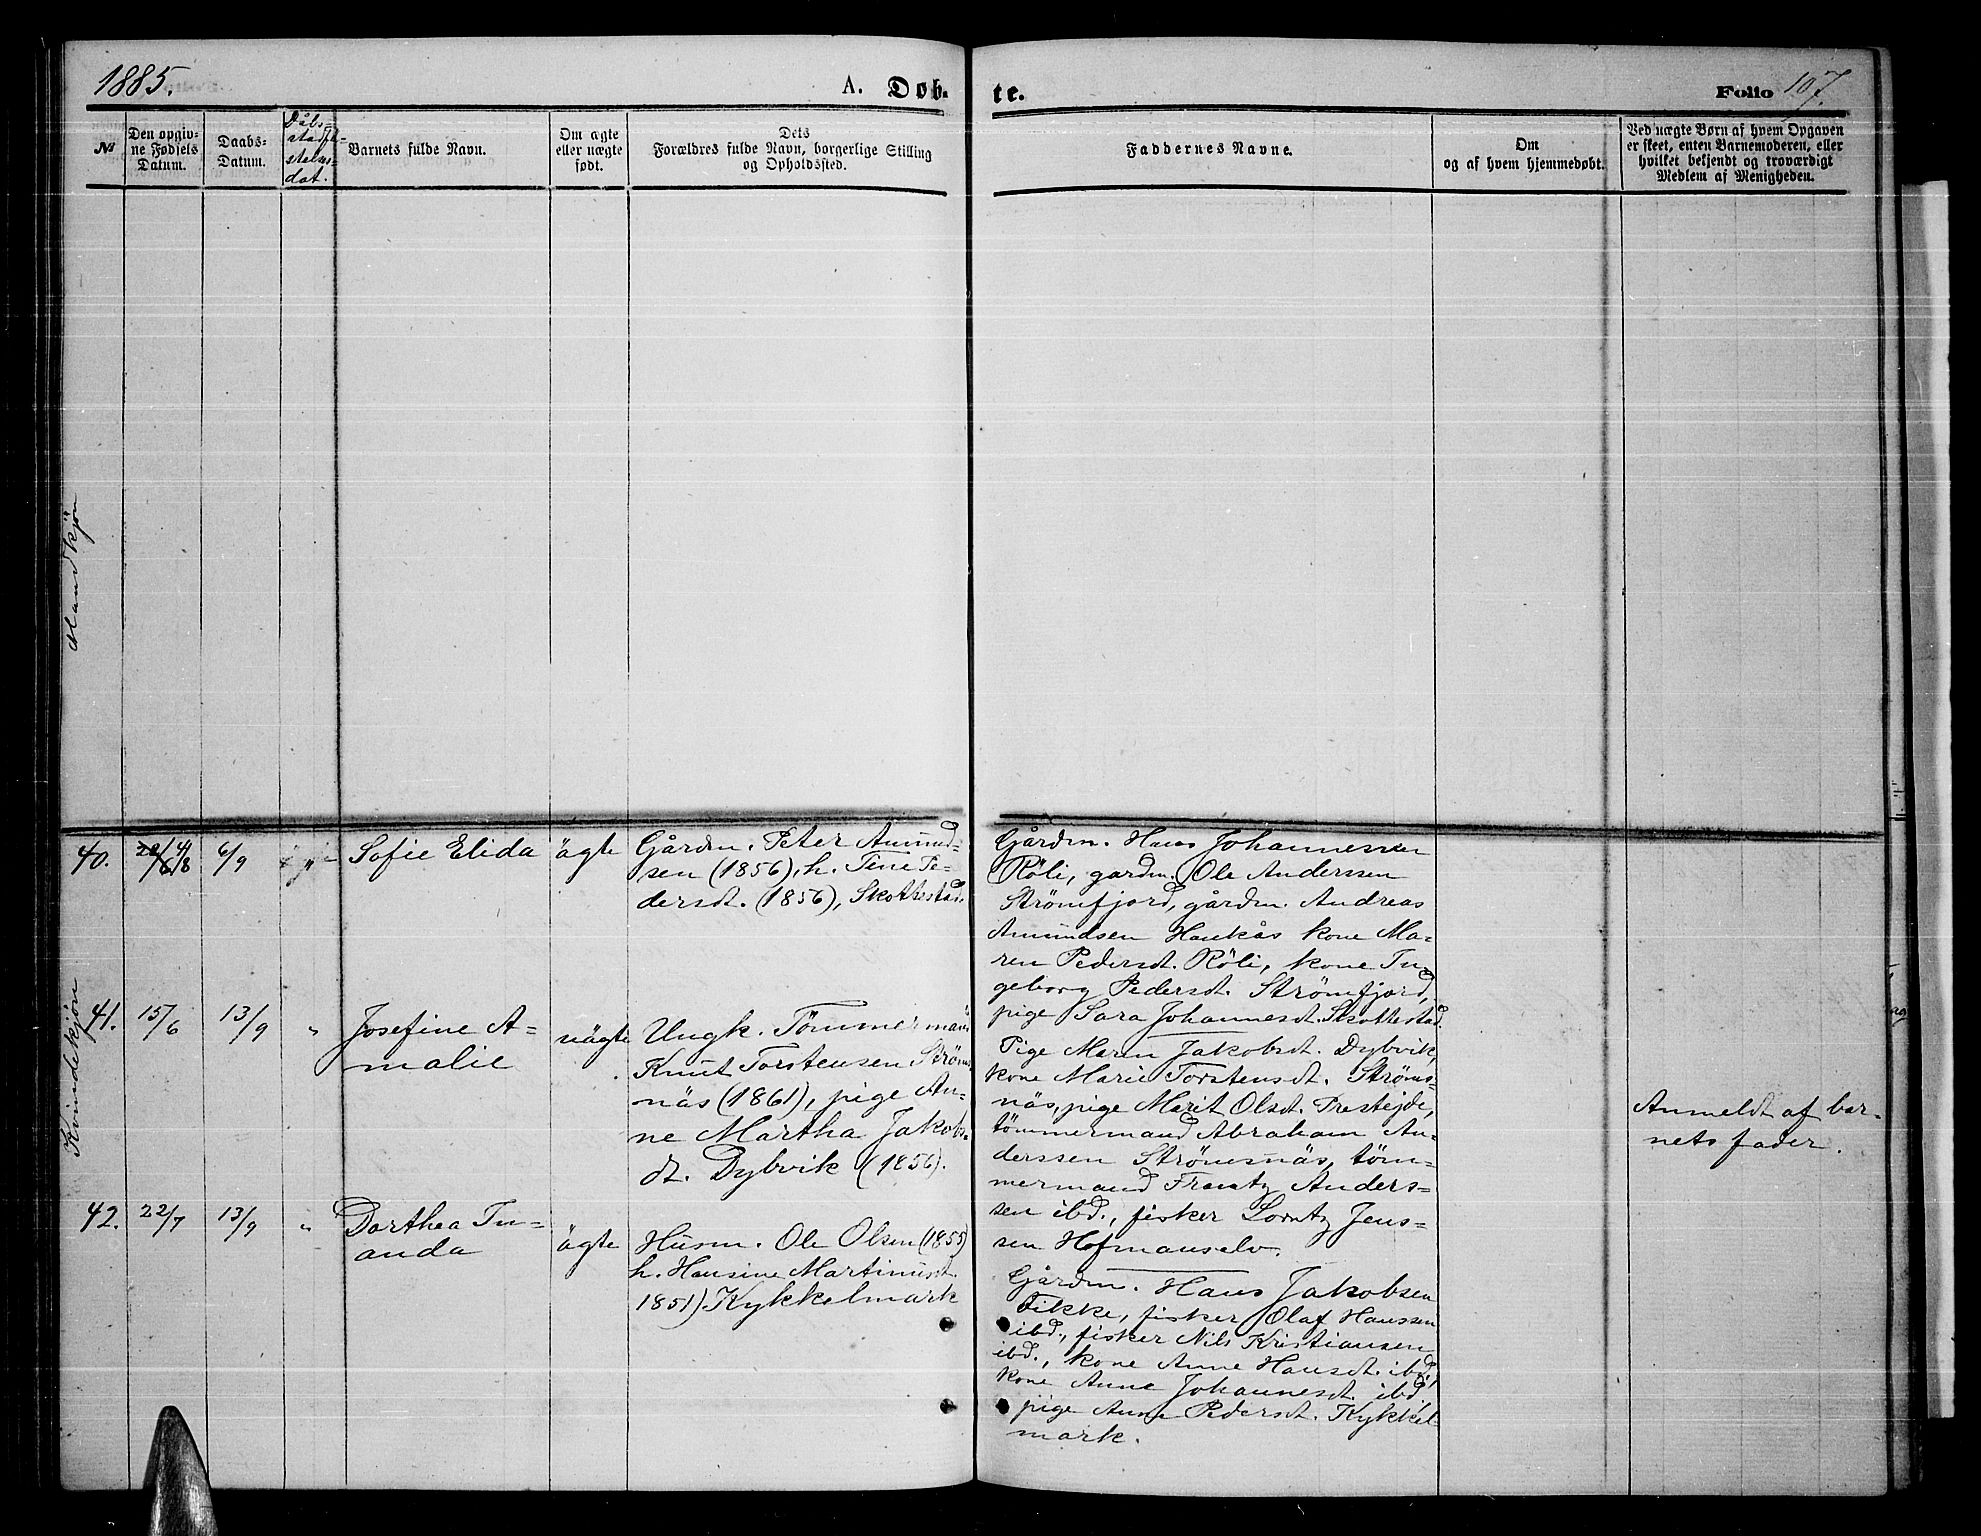 1885.
A. Døb-
te.
Folio 107.
№
Den opgiv-
ne Fødsels
Datum.
Daabs-
Datum.
Dåbs-
stadfæ-
stelses-
dat.
Barnets fulde Navn.
Om ægte
eller uægte
født.
Dets
Forældres fulde Navn, borgerlige Stilling
og Opholdssted.
Faddernes Navne.
Om
og af hvem hjemmedøbt.
Ved uægte Børn af hvem Opgaven
er skeet, enten Barnemoderen, eller
hvilket bekjendt og troværdigt
Medlem af Menigheden.
Mandkjön
Kvindekjön
40.
4/8
6/9
Sofie Elida
ägte
Gårdm. Peter Amund-
sen (1856), h. Tine Pe-
dersdt. (1856), Skottestad.
Gårdm. Hans Johannessen
Röli, gardm. Ole Anderssen
Strömfjord, gårdm. Andreas
Amundsen Haukås kone Ma-
ren Pedersdt. Röli, kone In-
geborg Pedersdt. Strömfjord,
pige Sara Johannesdt. Skottestad.
41.
15/6
13/9
"
Josefine A-
malie
uägte
Ungk. Tömmermand
Knut Torstensen Ströms-
näs (1861), pige An-
ne Martha Jakobs-
dt. Dybvik (1856).
Pige Maren Jakobsdt. Dybvik,
kone Marie Torstensdt. Ströms-
näs, pige Marit Olsdt. Prestejde,
tömmermand Abraham An-
derssen Strömsnäs, töm-
mermand Frantz Anders-
sen ibd., fisker Lorntz Jens-
sen Hofmanselv.
Anmeldt af bar-
nets fader.
42.
22/7
13/9
"
Dorthea Iu-
anda
ägte
Husm. Ole Olsen (1855)
h. Hansine Martinusdt.
1851) Kykkelmark
Gårdm. Hans Jakobsen
Fikke, fisker Olaf Hanssen
ibd., fisker Nils Kristiansen
ibd., kone Anne Hansdt. ibd.,
kone Anne Johannesdt. ibd
pige Anne Pedersdt. Kykkel-
mark.